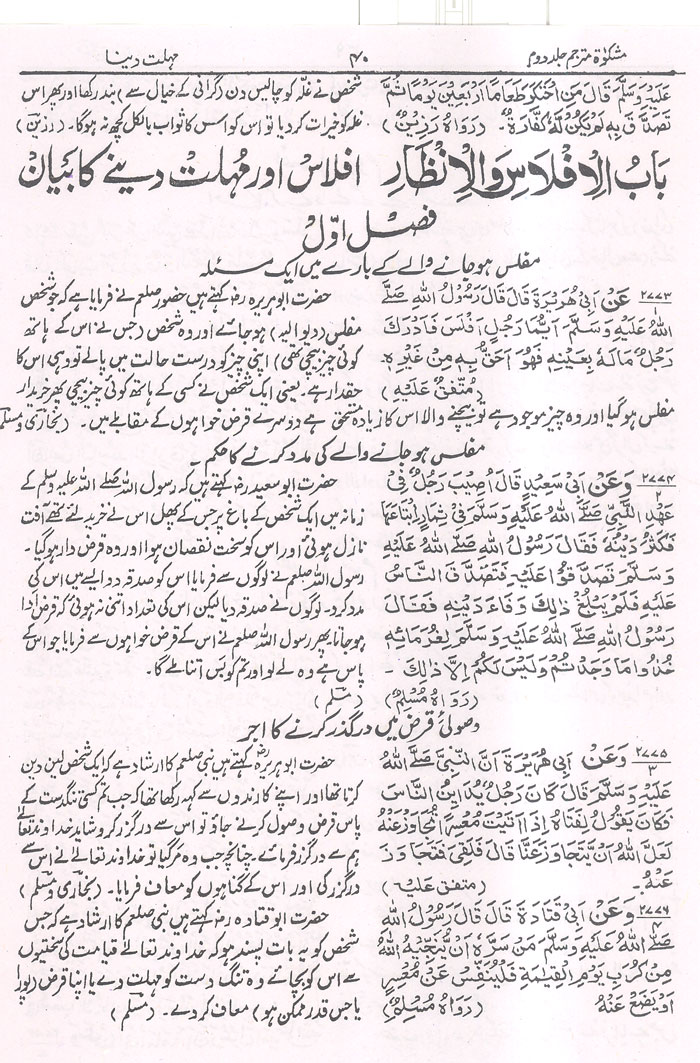 مشکوٰۃ مترجم جلد دوم
۴۰
مہلت دینا
عَلَیْہِ وَسَلَّمَ قَالَ مَنِ احْتَکَرَ طَعَامًا اَرْبَعِیْنَ یَوْمًا ثُمَّ
تَصَدَّقَ بِہٖ لَمْ یَکُنْ لَّہٗ کَفَّارَۃً۔ (رَوَاہُ رَزِیْنٌ)
شخص نے غلّہ کو چالیس دن (گرانی کے خیال سے) بند رکھا اور پھر اس
غلہ کو خیرات کردیا تو اس کو اس کا ثواب بالکل کچھ نہ ہوگا۔ (رزین)
بَابُ الْاِفْلَاسِ وَالْاِنْظَارِ
افلاس اور مُہلت دینے کا بیان
فصل اوّل
مفلس ہو جانے والے کے بارے میں ایک مسئلہ
۲۷۷۳
۱
عَنْ اَبِیْ ھُرَیْرَۃَ قَالَ قَالَ رَسُوْلُ اللہِ صَلَّے
اللہُ عَلَیْہِ وَسَلَّمَ اَیُّمَا رَجُلٍ اَفْلَسَ فَاَدْرَکَ
رَجُلٌ مَالَہٗ بِعَیْنِہٖ فَھُوَ اَحَقُّ بِہٖ مِنْ غَیْرِہٖ
(مُتَّفَقٌ عَلَیْہِ)
حضرت ابوہریرہ رضہ کہتے ہیں حضور صلعم نے فرمایا ہے کہ جو شخص
مفلس (دیوالیہ) ہو جائے اور وہ شخص (جس نے اس کے ہاتھ
کوئی چیز بیچی تھی) اپنی چیز کو درست حالت میں پالے تو وہی اس کا
حقدار ہے۔ یعنی ایک شخص نے کسی کے ہاتھ کوئی چیز بیچی پھر خریدار
مفلس ہو گیا اور وہ چیز موجود ہے تو بیچنے والا اس کا زیادہ مستحق ہے دوسرے قرض خواہوں کے مقابلے میں۔ (بخاری و مسلم
مفلس ہو جانے والے کی مدد کرنے کا حکم۔
۲۷۷۴
۲
وَعَنْ اَبِیْ سَعِیْدٍ قَالَ اُصِیْبَ رَجُلٌ فِیْ
عَھْدِ النَّبِیِّ صَلَّے اللہُ عَلَیْہِ وَسَلَّمَ فِیْ ثِمَارٍ اِبْتَاعَھَا
فَکَثُرَ دَیْنُہٗ فَقَالَ رَسُوْلُ اللہِ صَلَّے اللہُ عَلَیْہِ
وَسَلَّمَ تَصَدَّقُوْا عَلَیْہِ فَتَصَدَّقَ النَّاسُ
عَلَیْہِ فَلَمْ یَبْلُغْ ذٰلِکَ وَفَاءَ دَیْنِہٖ فَقَالَ
رَسُوْلُ اللہِ صَلَّے اللہُ عَلَیْہِ وَسَلَّمَ لِغُرَمَائِہٖ
خُذُوْا مَا وَجَدْتُّمْ وَلَیْسَ لَکُمْ اِلَّا ذٰلِکَ۔
(رَوَاہُ مُسْلِمٌ)
حضرت ابوسعید رضہ کہتے ہیں کہ رسول اللہ صلے اللہ علیہ وسلم کے
زمانہ میں ایک شخص کے باغ پر جس کے پھل اس نے خریدے تھے آفت
نازل ہوئی اور اس کو سخت نقصان ہوا اور وہ قرض دار ہوگیا۔
رسول اللہ صلعم نے لوگوں سے فرمایا اس کو صدقہ دو ایسے میں اس کی
مدد کرو۔ لوگوں نے صدقہ دیا لیکن اس کی تعداد اتنی نہ ہوئی کہ قرض ادا
ہو جاتا پھر رسول اللہ صلعم نے اس کے قرض خواہوں سے فرمایا جو اس کے
پاس ہے وہ لے لو اور تم کو بس اتنا ملے گا۔
(مسلم)
وصولئ قرض میں درگذر کرنے کا اجر
۲۷۷۵
۳
وَعَنْ اَبِیْ ھُرَیْرَۃَ اَنَّ النَّبِیَّ صَلَّے اللہُ
عَلَیْہِ وَسَلَّمَ قَالَ کَانَ رَجُلٌ یُّدَایِنُ النَّاسَ
فَکَانَ یَقُوْلُ لِفَتَاہُ اِذَا اَتَیْتَ مُعْسِرًا تَجَاوَزْ عَنْہُ
لَعَلَّ اللہَ اَنْ یَّتَجَاوَزَ عَنَّا قَالَ فَلَقِیَ فَتَجَاوَزَ
عَنْہُ۔ (متفق علیہ)
حضرت ابوہریرہ رضہ کہتے ہیں نبی صلعم کا ارشاد ہے کہ ایک شخص لین دین
کرتا تھا اور اپنے کارندوں سے کہہ رکھا تھا کہ جب تم کسی تنگدست کے
پاس قرض وصول کرنے جاؤ تو اس سے درگزر کرو شاید خداوند تعالےٰ
ہم سے درگزر فرمائے۔ چنانچہ جب وہ مر گیا تو خداوند تعالےٰ نے اس سے
درگزر کی اور اس کے گناہوں کو معاف فرمایا۔ (بخاری و مسلم)
۲۷۷۶
۴
وَعَنْ اَبِیْ قَتَادَۃَ قَالَ قَالَ رَسُوْلُ اللہِ
صَلَّے اللہُ عَلَیْہِ وَسَلَّمَ مَنْ سَرَّہٗ اَنْ یُّنَجِّیَہُ اللہُ
مِنْ کُرَبِ یَوْمِ الْقِیٰمَۃِ فَلْیُنَفِّسْ عَنْ مُعْسِرٍ
اَوْ یَضَعْ عَنْہُ (رَوَاہُ مُسْلِمٌ)
حضرت ابوقتادہ رضہ کہتے ہیں نبی صلعم کا ارشاد ہے کہ جس
شخص کو یہ بات پسند ہو کہ خداوند تعالےٰ قیامت کی سختیوں
سے اس کو بچائے وہ تنگ دست کو مہلت دے یا اپنا قرض (پورا
یا جس قدر ممکن ہو) معاف کر دے۔ (مسلم)